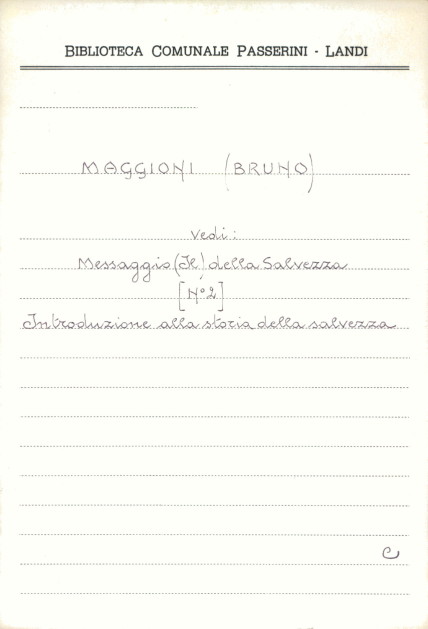 BIBLIOTECA COMUNALE PASSERINI - LANDI
MAGGIONI (BRUNO)
Vedi:
Messaggio (Il) della Salvezza
[N° 2]
Introduzione alla storia della salvezza
C